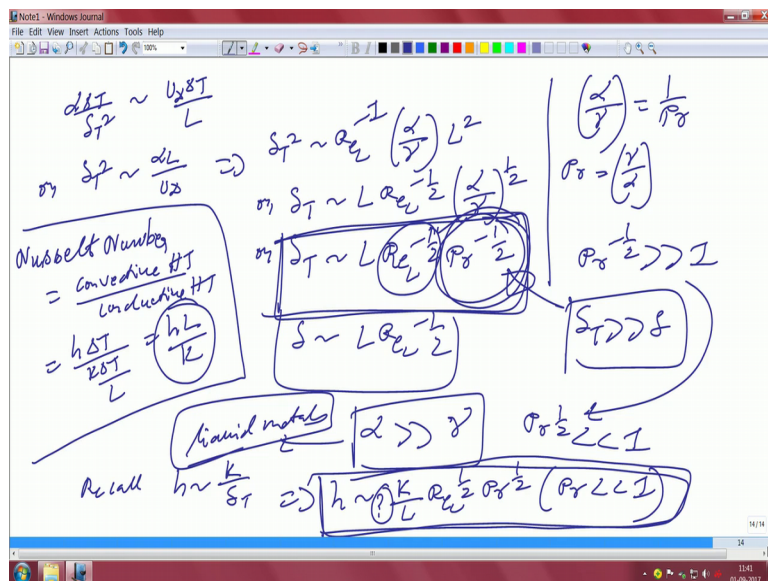 Note1 - Windows Journal
File Edit View Insert Actions Tools Help
100%
αΔT/δ_T² ~ U_∞ΔT/L
or, δ_T² ~ αL/U_∞ => δ_T² ~ Re_L^-1 (α/γ) L²
or, δ_T ~ L Re_L^-1/2 (α/γ)^1/2
or δ_T ~ L Re_L^-1/2 Pr^-1/2
δ ~ L Re_L^-1/2
(α/γ) = 1/Pr
Pr = (γ/α)
Pr^-1/2 >> 1
δ_T >> δ
Pr^1/2 << 1
Nusselt Number
= convective HT / conductive HT
= hΔT / (kΔT/L) = hL/k
liquid metals
α >> γ
Recall h ~ k/δ_T => h ~ ? k/L Re_L^1/2 Pr^1/2 (Pr << 1)
14/14
14
11:41
01-09-2017